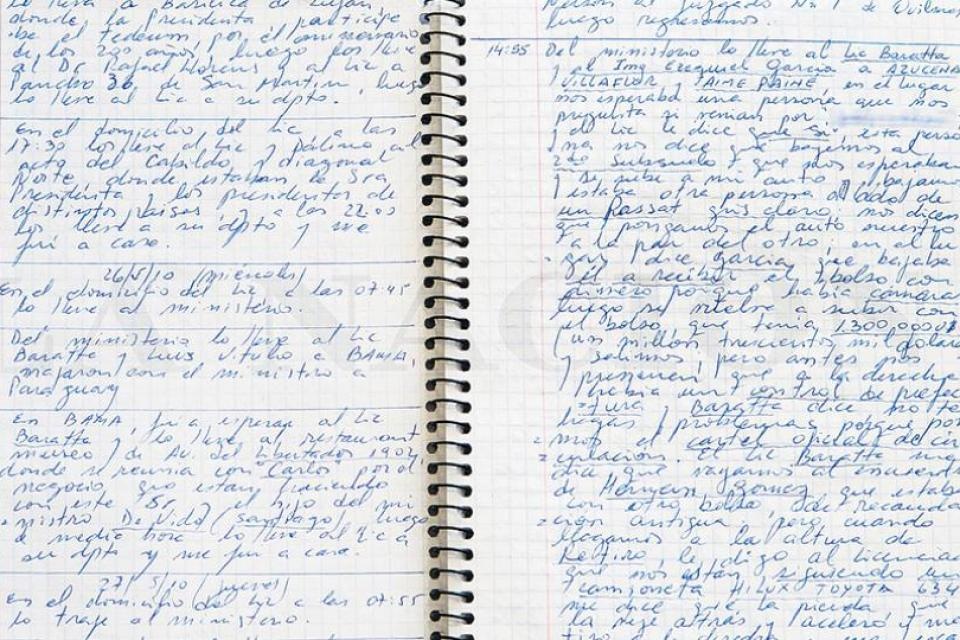 lo llevé a Basílica de Luján
donde la Presidenta participe
de el tedeum por el aniversario
de los 200 años, luego los llevé
al Dr. Rafael y al Lic a
Pancho 36, de San Martín, luego
lo llevé al Lic a su dpto.
En el domicilio del Lic, a las
17:30 los llevé al Lic y Palino al
acto del Cabildo y diagonal
Norte donde estaban la Sra
Presidenta y los presidentes de
distintos países y a las 22:00
los llevé a su dpto y me
fui a casa.
26/5/10 (miércoles)
En el domicilio del Lic a las 07:45
lo llevé al ministerio.
Del ministerio lo llevé al Lic
Baratta y Luis Vitulo a BAMA,
viajaron con el ministro a
Paraguay
En BAMA, fui a esperar al Lic
Baratta y lo llevé al restaurant
museo, de Av. del Libertador 1902
donde se reunía con "Carlos" por el
negocio que están haciendo
con este Sr y el hijo del mi
nistro De Vido (Santiago) luego
de media hora lo llevé al Lic a
su dpto y me fui a casa.
27/5/10 (jueves)
En el domicilio del Lic a las 07:55
lo traje al ministerio.
al juzgado Nº 1 de Quilmes
luego regresamos.
14:55 Del ministerio lo llevé al Lic Baratta
y al Ing Ezequiel García a AZUCENA
VILLAFLOR JAIME PAINE, en el lugar
nos esperaba una persona que nos
pregunta si venían por
y el Lic le dice que si, esta perso
na nos dice que bajemos al
2do Subsuelo y que nos esperaban
y se sube a mi auto y bajamos
estaba otra persona al lado de
un Passat gris claro, nos dicen
que pongamos el auto nuestro
a la par del otro, en el lu
gar, dice García, que bajaba
él a recibir el bolso con
dinero porque había cámaras
luego se vuelve a subir con
el bolso, que tenía 1.300.000U$
(un millón trescientos mil dólares
y salimos pero antes nos
previenen que a la derecha
había un control de prefec
tura, Baratta dice no te
hagas problemas porque pone
mos el cartel oficial de cir
culación. El Lic Baratta me
dice que vayamos al encuentro
de Hernan Gomez, que estaba
con otro bolso, de recauda
ción antigua, pero cuando
llegamos a la altura de
Retiro, le digo al Licencia
que nos están siguiendo una
camioneta HILUX TOYOTA 634
me dice que la pierda, que
la deje atrás y aceleré y me
tiro a la derecha
LA NACION